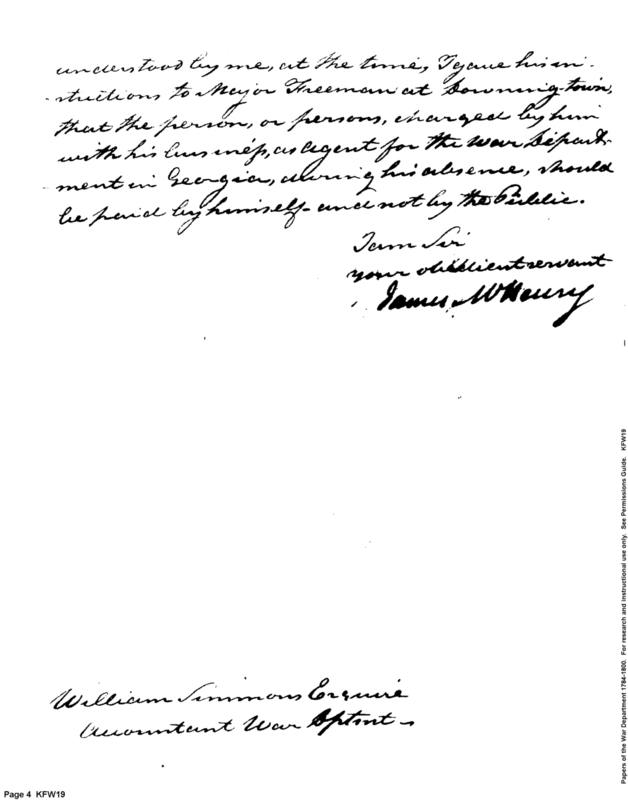 understood by me, at the time, I gave his in-
-structions to Major Freeman at Downing-town,
that the person, or persons, charged by him
with his business, as agent for the War Depart-
-ment in Georgia, during his absence, should
be paid by himself and not by the Public.
I am Sir
your obedient servant
James McHenry
William Simmons Esquire
Accountant War Dptmt
Page 4 KFW19
Papers of the War Department 1784-1800. For research and instructional use only. See Permissions Guide. KFW19